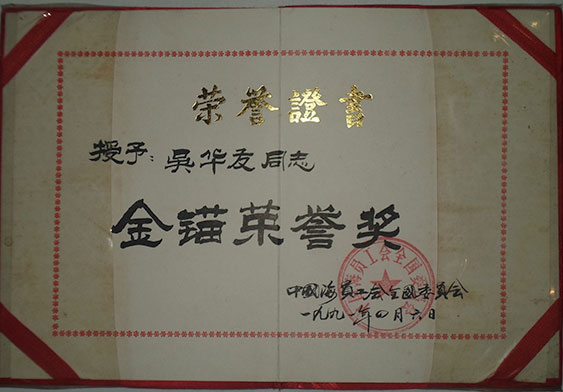 荣誉證書
授予：吳华友同志
金锚荣誉奖
中國海员工会全國委员会
一九九一年四月六日